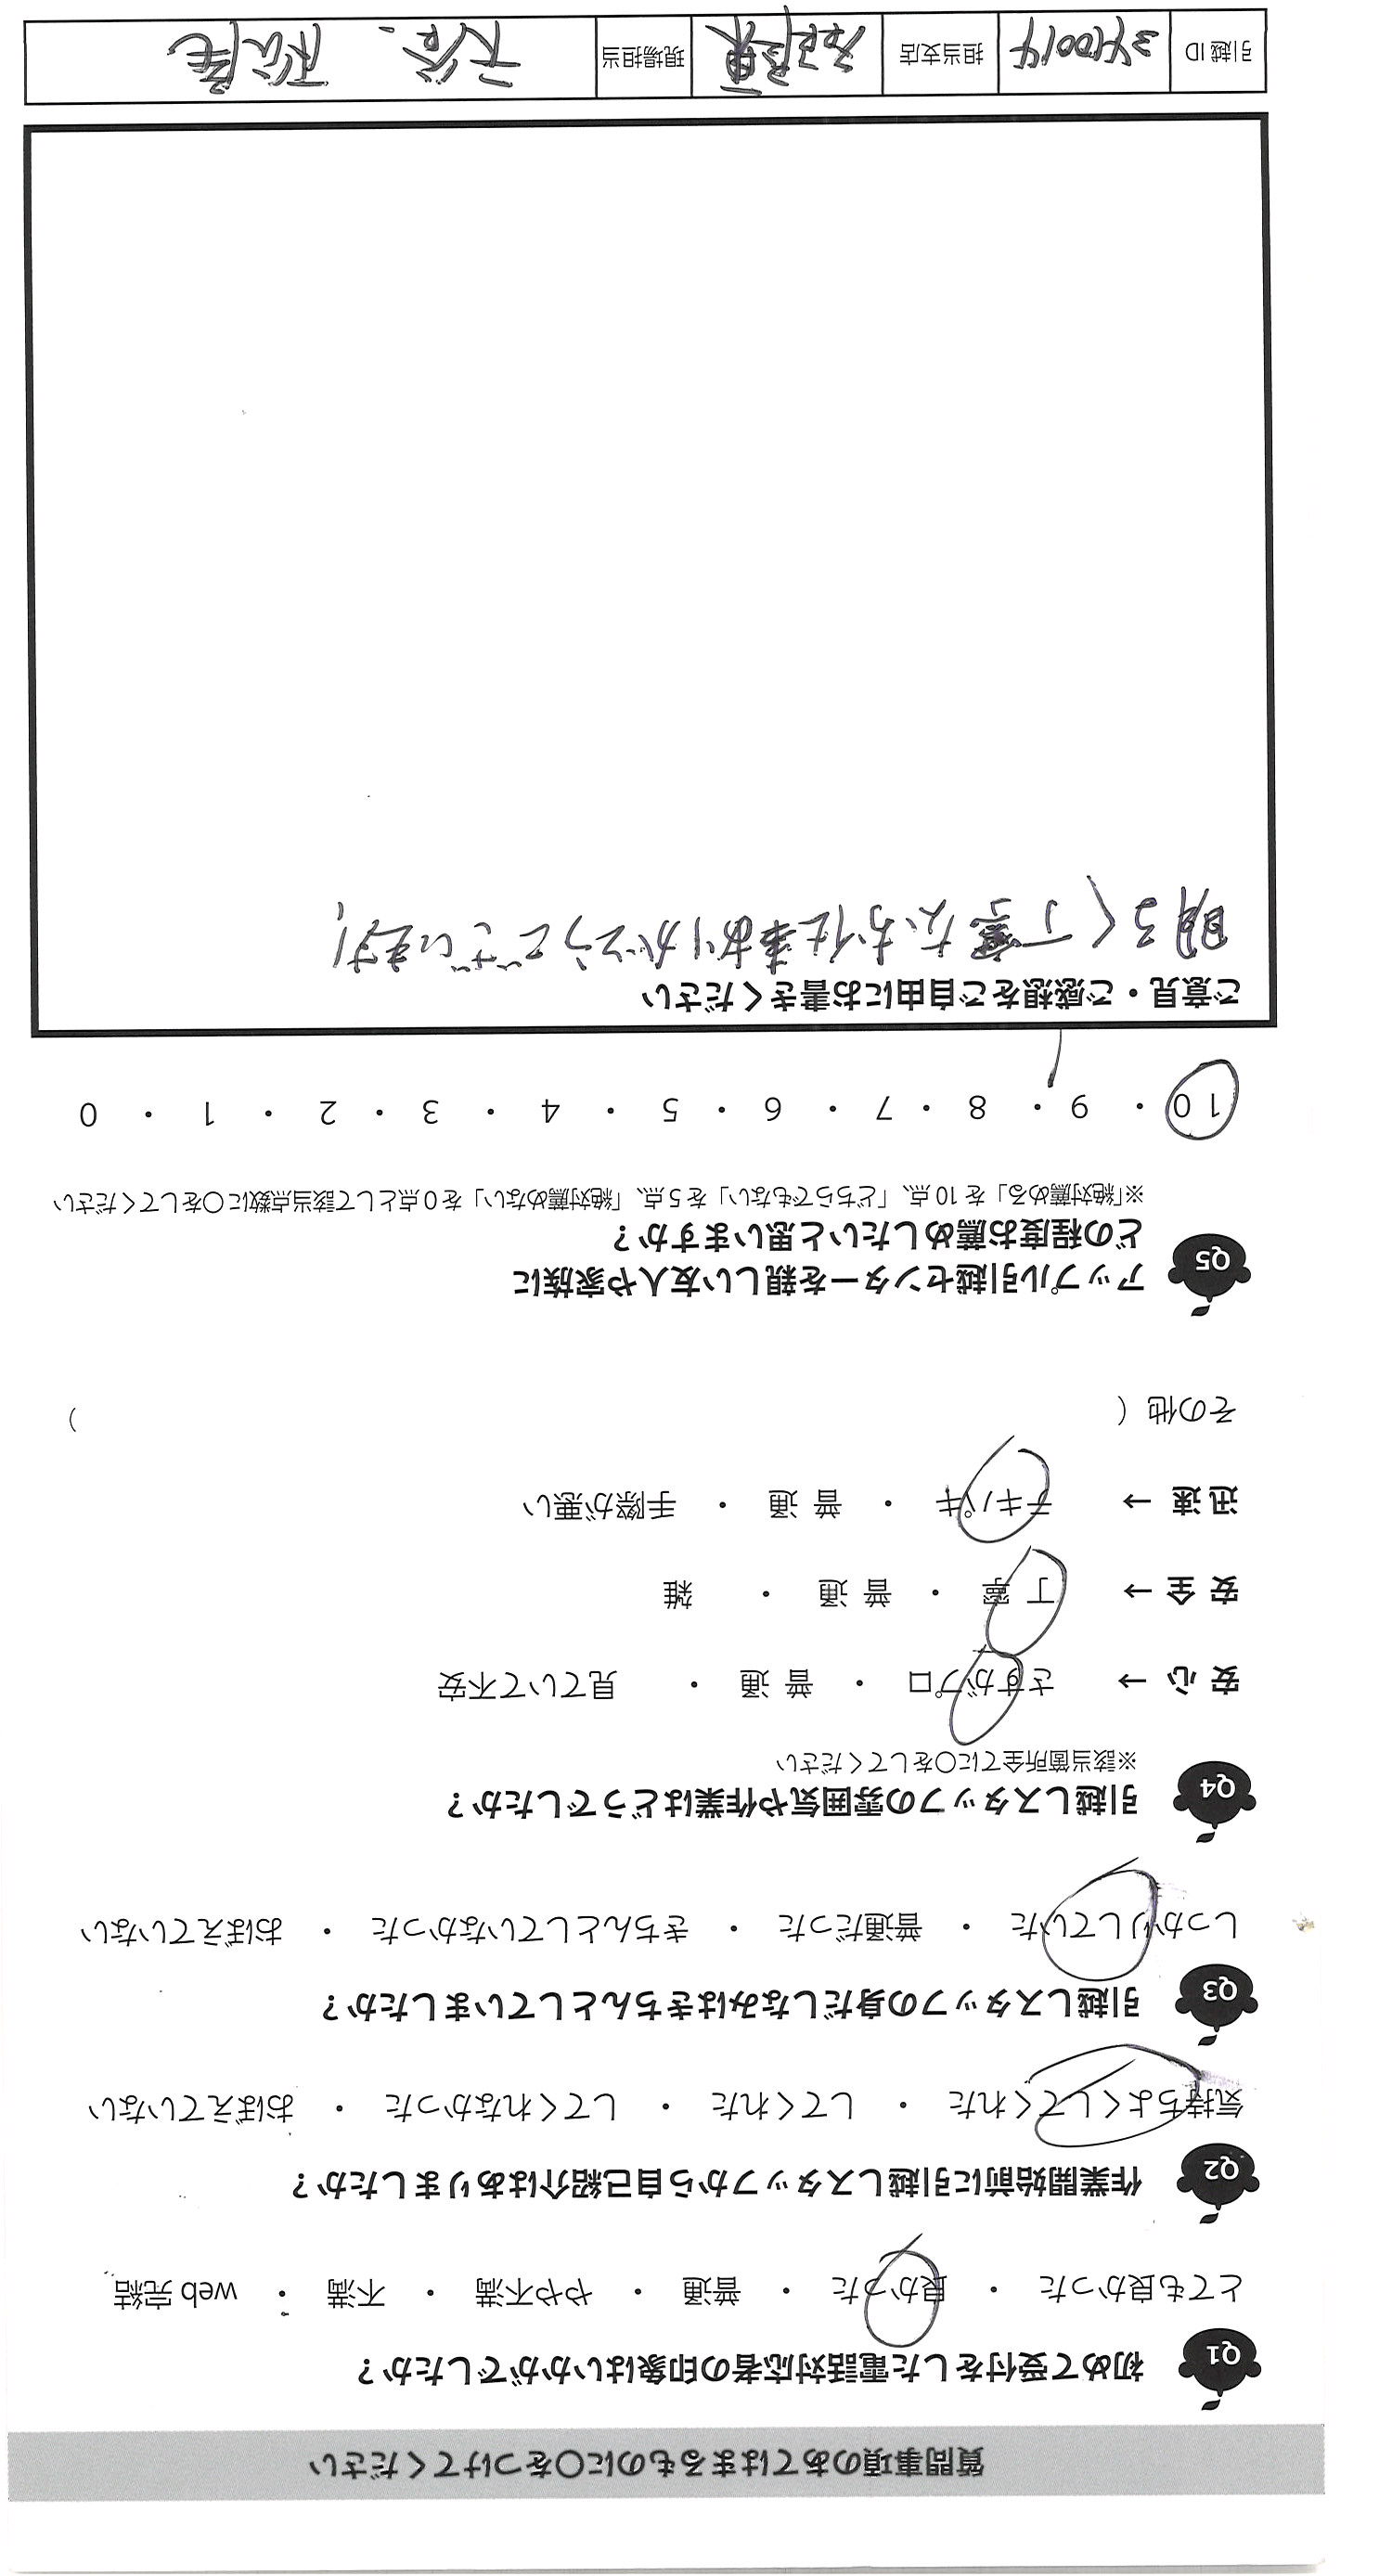 質問事項のあてはまるものに〇をつけてください
Q1 初めて受付をした電話対応者の印象はいかがでしたか？
とても良かった ・ 良かった ・ 普通 ・ やや不満 ・ 不満 ・ web 完結
Q2 作業開始前に引越しスタッフから自己紹介はありましたか？
気持ちよくしてくれた ・ してくれた ・ してくれなかった ・ おぼえていない
Q3 引越しスタッフの身だしなみはきちんとしていましたか？
しっかりしていた ・ 普通だった ・ きちんとしていなかった ・ おぼえていない
Q4 引越しスタッフの雰囲気や作業はどうでしたか？
※該当箇所全てに〇をしてください
安 心 → さすがプロ ・ 普 通 ・ 見ていて不安
安 全 → 丁 寧 ・ 普 通 ・ 雑
迅 速 → テキパキ ・ 普 通 ・ 手際が悪い
その他（ ）
Q5 アップル引越センターを親しい友人や家族に
どの程度お薦めしたいと思いますか？
※「絶対薦める」を 10 点、「どちらでもない」を 5 点、「絶対薦めない」を 0 点として該当点数に〇をしてください
10 ・ 9 ・ 8 ・ 7 ・ 6 ・ 5 ・ 4 ・ 3 ・ 2 ・ 1 ・ 0
ご意見・ご感想をご自由にお書きください
明るく丁寧なお仕事ありがとうございます!
引越 ID 340014 担当支店 現場担当 松尾